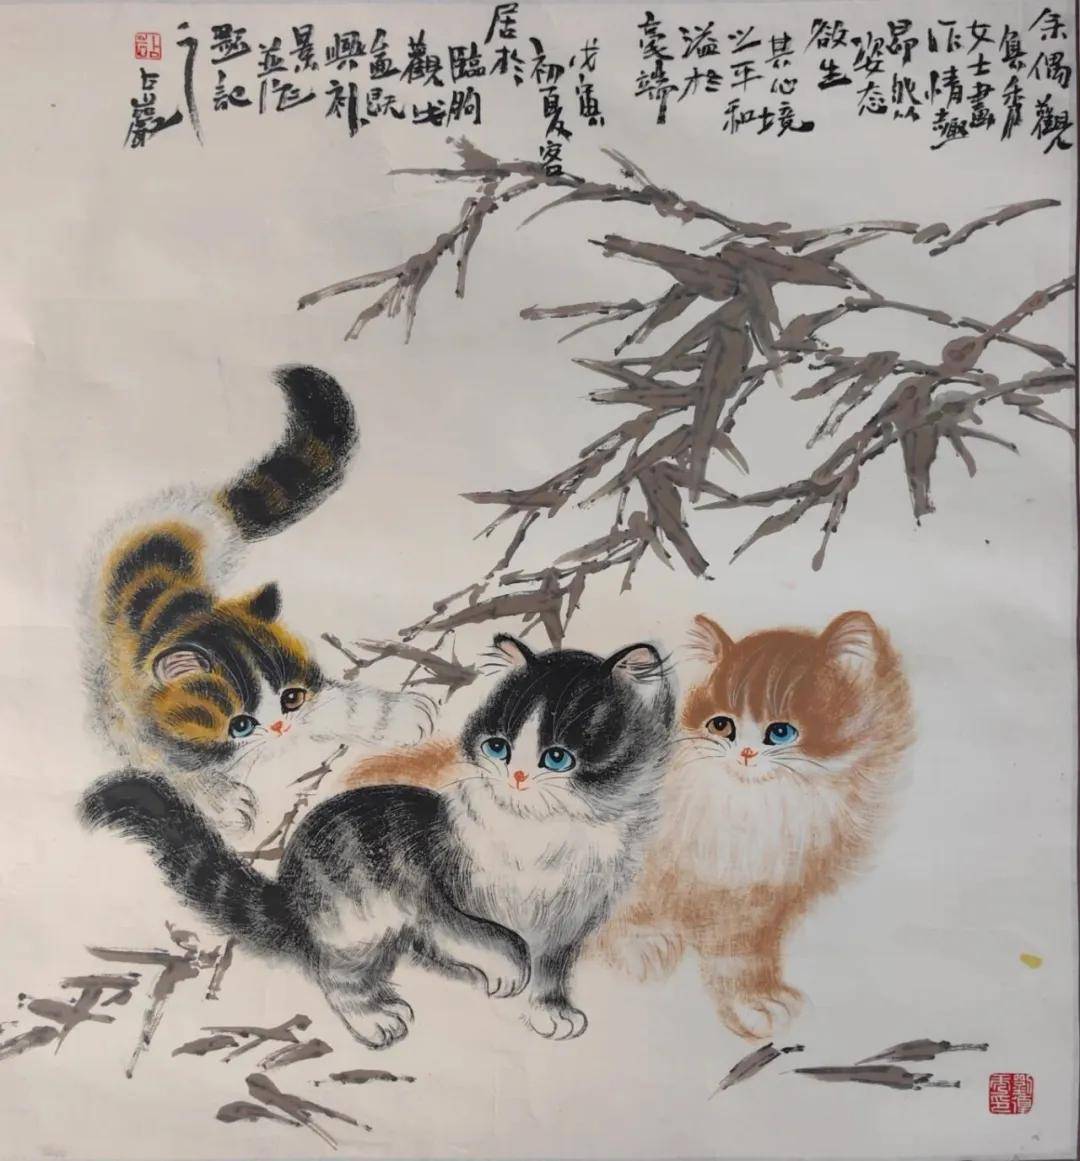 余偶觀
女士畫
作情趣
昂然
姿态
欲生
其心境
之平和
溢於
豪端
戊寅
初夏客
居於
臨朐
觀此
興补
景
並作
題記
占巖